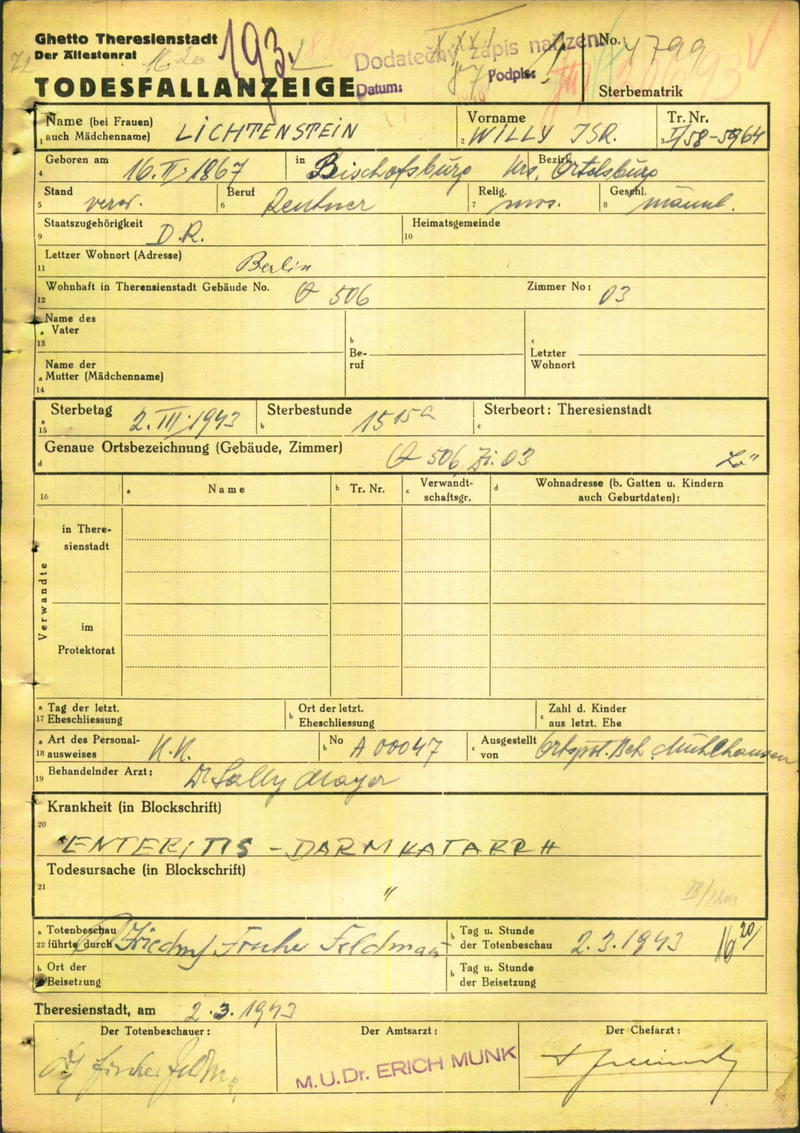 Ghetto Theresienstadt
Der Ältestenrat
193
Dodatečný zápis nařízen
Datum: Podpis:
No. 4799
TODESFALLANZEIGE
Sterbematrik
Name (bei Frauen) auch Mädchenname) LICHTENSTEIN
Vorname WILLY ISR.
Tr. Nr. I/58-5964
Geboren am 16. II. 1867 in Bischofsburg Bezirk Krs. Ortelsburg
Stand verw. Beruf Rentner Relig. mos. Geschl. männl.
Staatszugehörigkeit D.R. Heimatsgemeinde
Letzter Wohnort (Adresse) Berlin
Wohnhaft in Theresienstadt Gebäude No. Q 506 Zimmer No: 03
Name des Vater
Be-ruf
Letzter Wohnort
Name der Mutter (Mädchenname)
Sterbetag 2. III. 1943 Sterbestunde 15 15 Sterbeort: Theresienstadt
Genaue Ortsbezeichnung (Gebäude, Zimmer) Q 506 Zi. 03
16 a Name b Tr. Nr. c Verwandt-schaftsgr. d Wohnadresse (b. Gatten u. Kindern auch Geburtdaten):
Verwandte
in There-sienstadt
im Protektorat
17 a Tag der letzt. Eheschliessung b Ort der letzt. Eheschliessung c Zahl d. Kinder aus letzt. Ehe
18 a Art des Personal-ausweises K.K. b No A 00047 c Ausgestellt von Mühlhausen
19 Behandelnder Arzt: Dr Sally Mayer
Krankheit (in Blockschrift)
20
ENTERITIS - DARMKATARRH
Todesursache (in Blockschrift)
21 "
22 a Totenbeschau führte durch Feldmann b Tag u. Stunde der Totenbeschau 2.3.1943 16 20
b Ort der Beisetzung b Tag u. Stunde der Beisetzung
Theresienstadt, am 2.3.1943
Der Totenbeschauer: Der Amtsarzt: Der Chefarzt:
M.U.Dr. ERICH MUNK